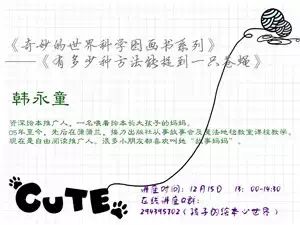 《奇妙的世界科学图画书系列》
——《有多少种方法能捉到一只苍蝇》
韩永童
资深绘本推广人，一名喂着绘本长大孩子的妈妈。
05年至今，先后在蒲蒲兰、接力出版社从事故事会及魔法地毯教室课程教学。
现在是自由阅读推广人。很多小朋友都喜欢叫她“故事妈妈”。
CUTE
讲座时间：12月15日 13：00-14:30
在线讲座Q群：
294395702（孩子的绘本心世界）